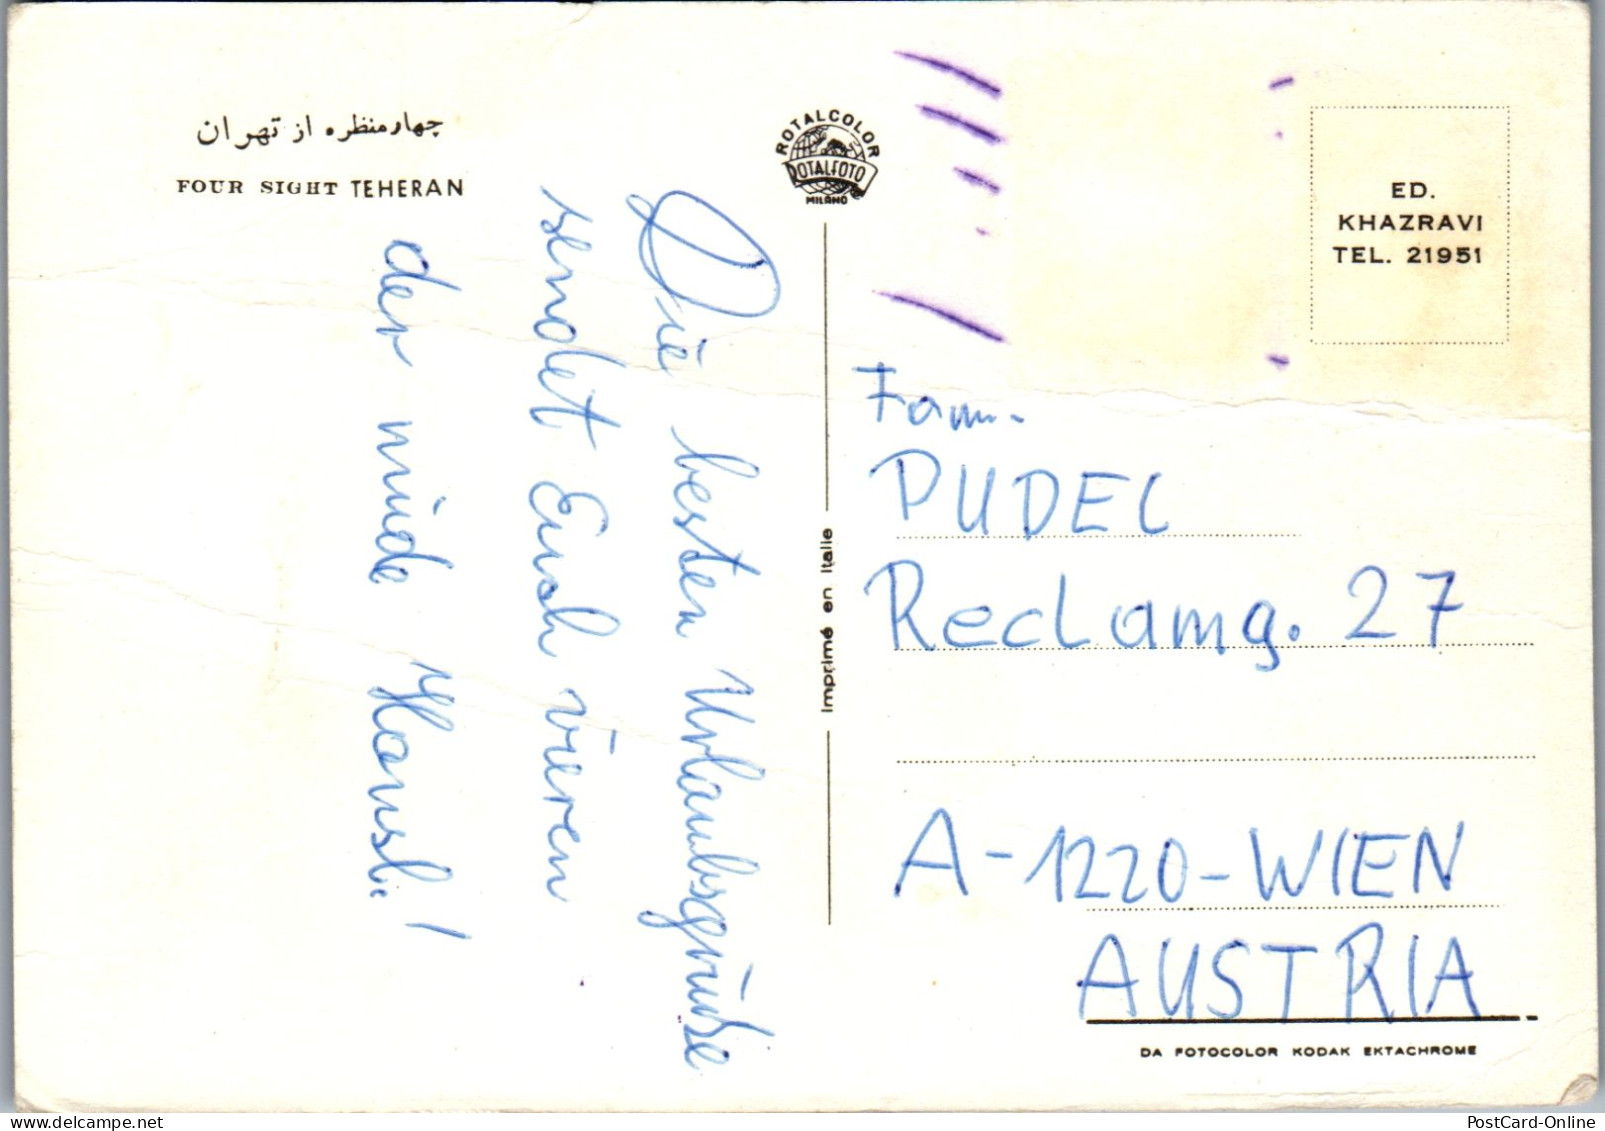 چهارمنظره از تهران
FOUR SIGHT TEHERAN
ROTALCOLOR
ROTALFOTO
MILANO
ED.
KHAZRAVI
TEL. 21951
Die besten Urlaubsgrüße
sendet Euch
der müde Hansli!
Imprimé en Italie
Fam.
PUDEL
Reclamg. 27
A-1220-WIEN
AUSTRIA
DA FOTOCOLOR KODAK EKTACHROME
PostCard-Online